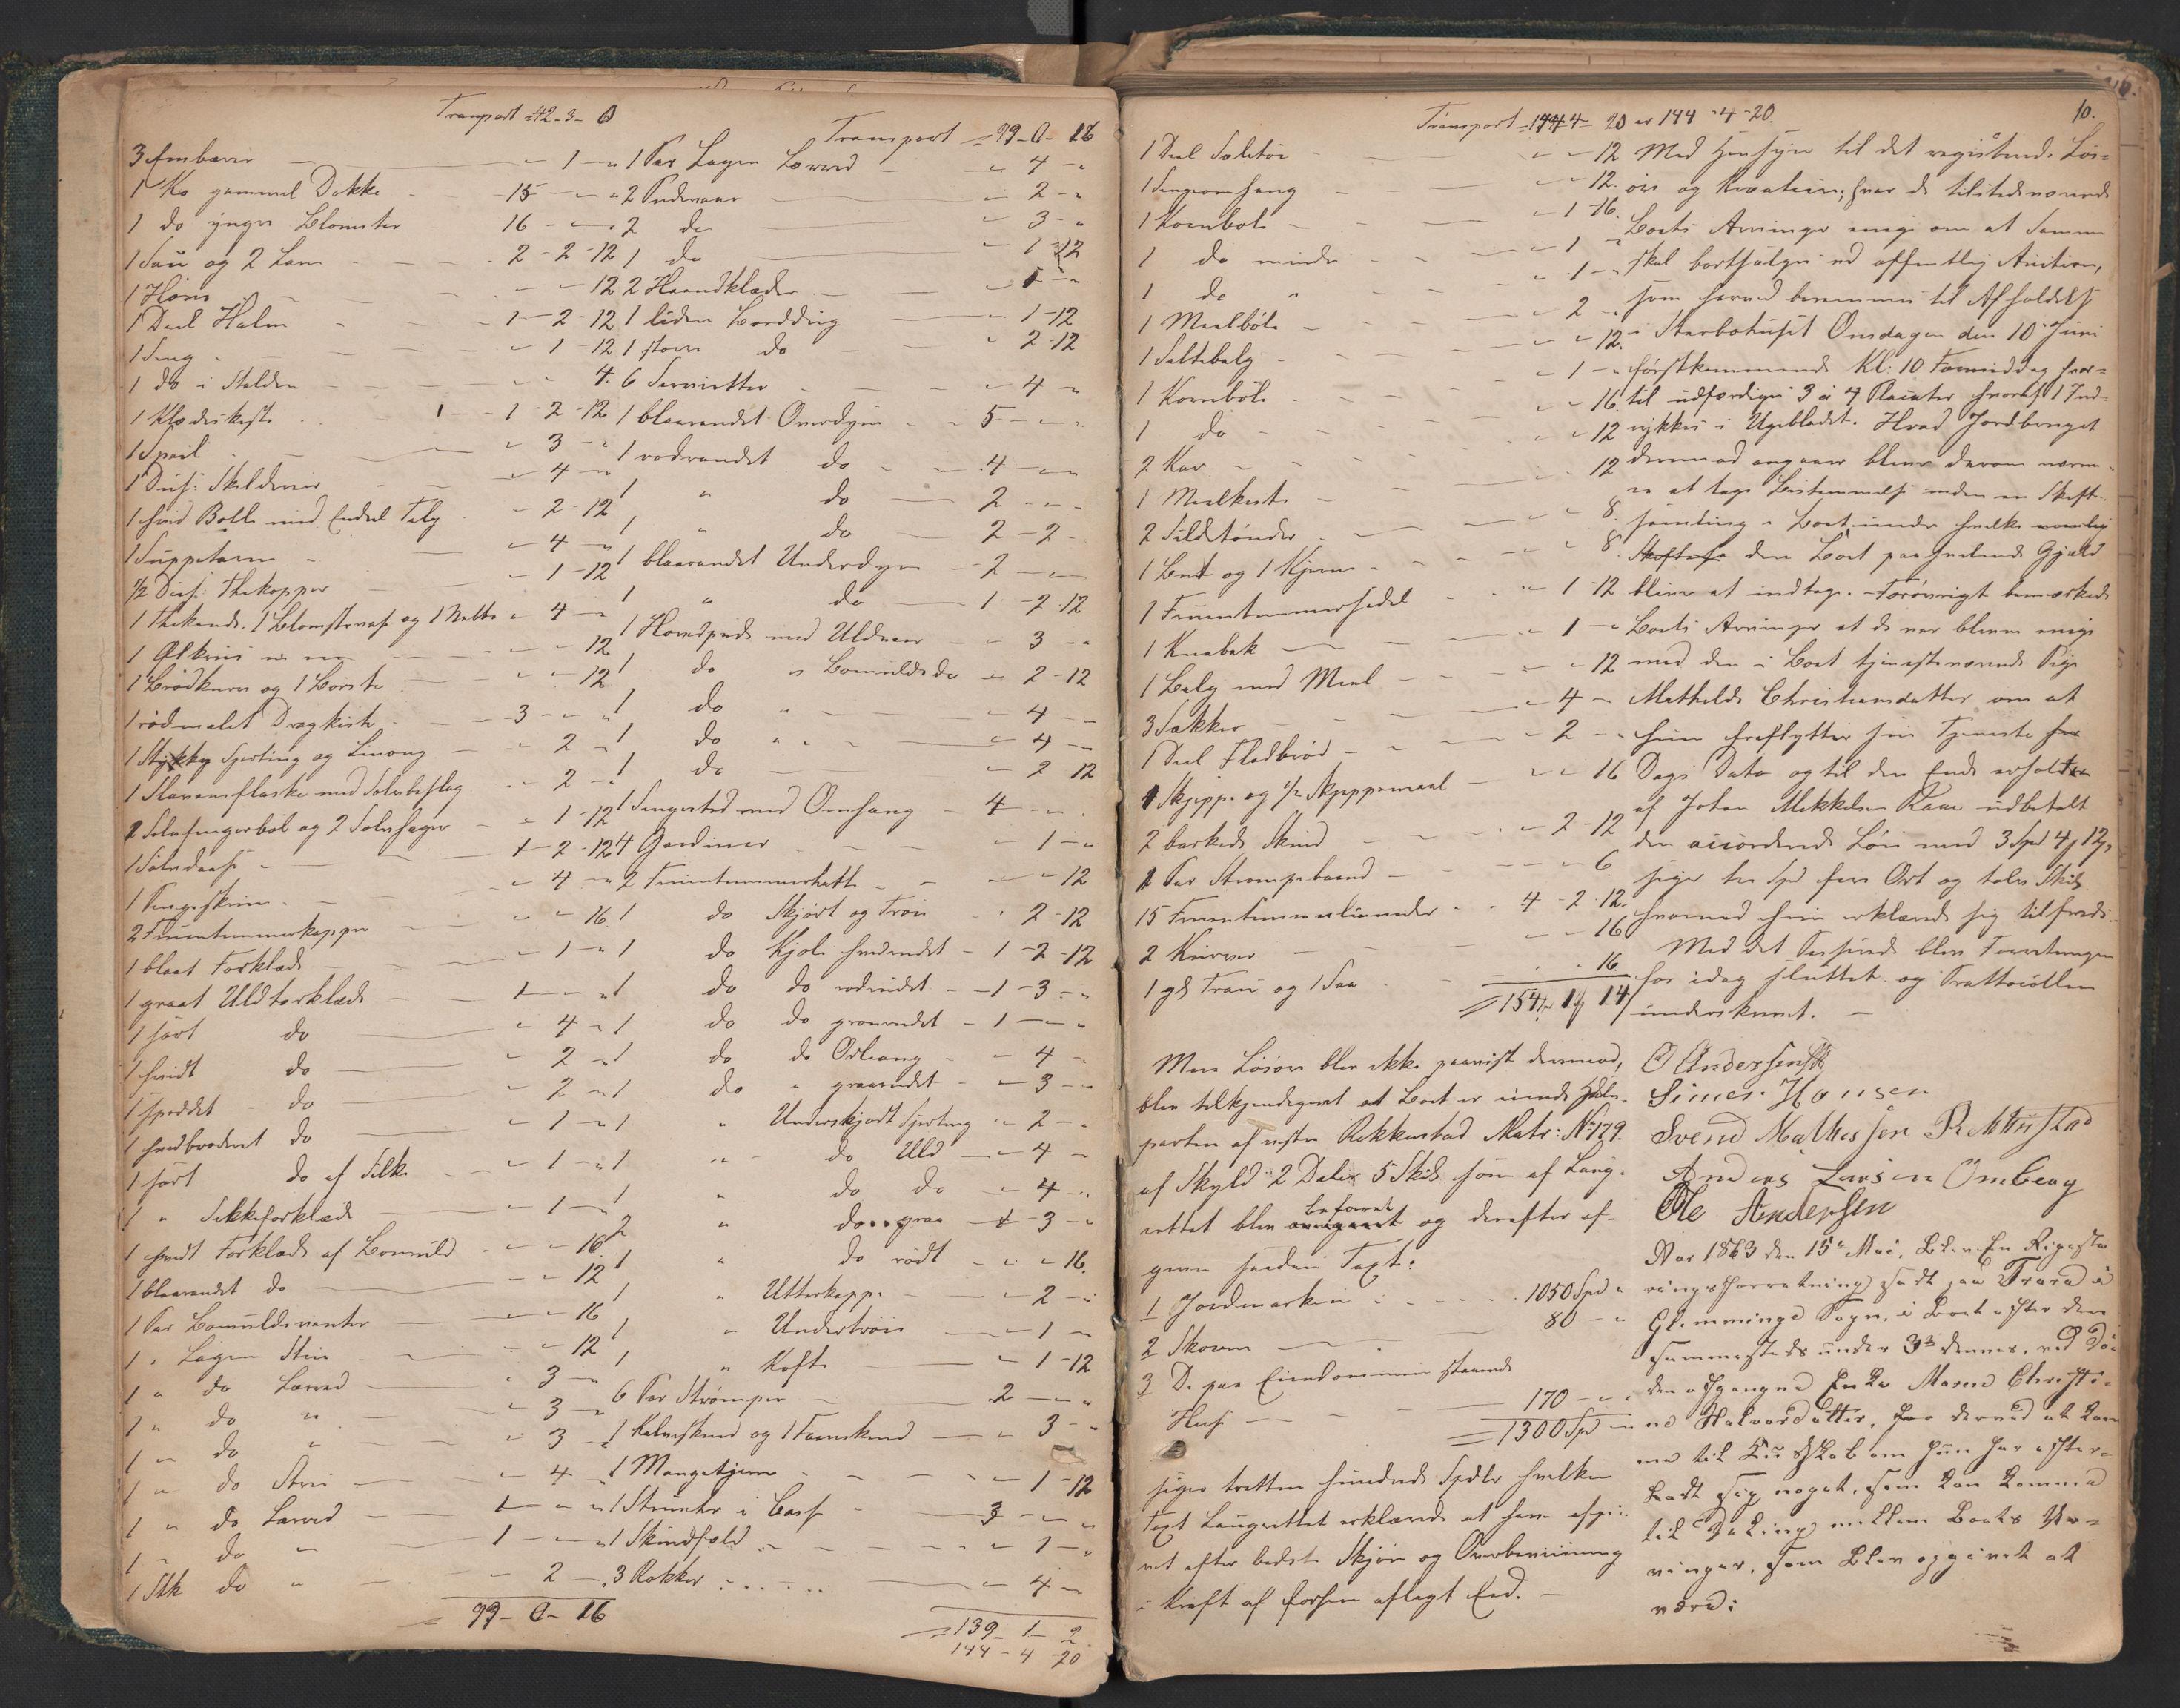 Transport 42-3-0
3 Embarer " 1 "
1 Ko gammel Dokke 15 - " "
1 do yngre Blomster 16 - " "
1 Sau og 2 Lam 2-2-12
1 Høns - - 12
1 Deel Halm 1-2-12
1 Seng " 1-12
1 do i Stalden " " 4
1 Klædeskiste 1-2-12
1 Speil " 3 - "
1 Dus: Skilderier " 4 - "
1 hvid Bolle med Endeel Talg - 2-12
1 Suppeterin " 4 - "
½ Dus: Thekopper - 1-12
1 Thekande, 1 Blomstervase og 1 " 4 - "
1 Ølkrus - - 12
1 Brødkurv og 1 Børste - - 12
1 rødmalet Dragkiste 3 - " "
1 Stykke Sjerting og " 2 - "
1 med Sølvbeslag " 2 - "
2 Sølvfingerbøl og 2 " 1-12
1 Sølvdaase 1-2-12
1 Pengeskrin " 4 - "
2 Fruentimmerkapper " " 16
1 blaat Forklæde " 1 "
1 graat Uldtørklæde 1 - " "
1 sort do " 4 - "
1 hvidt do " 2 - "
1 do " 2 - "
1 hvidbroderet do " 1 - "
1 sort do af Silke " 1 - "
1 " Silkeforklæde " 1 - "
1 hvidt Forklæde af Bomuld " - 16
1 blaarandet do - - 12
1 Par Bomuldsvanter " - 16
1 " Lagen Strie " - 12
1 " do Lærred " 3 - "
1 " do " " 3 - "
1 " do " " 3 - "
1 " do Strie " 4 - "
1 " do Lærred 1 - " "
1 " do " 1 - " "
1 Stk do " - 2 - "
99-0-16
Transport 99-0-16
1 Par Lagen Lærred " 4 - "
2 Pudevaar " 2 - "
2 do " 3 - "
1 do " 1-12
2 Haandklæder " 1 - "
1 liden Borddug " 1-12
1 større do " 2-12
6 Servietter " 4 - "
1 blaarandet Overdyne 5 - " "
1 rødrandet do 4 - " "
1 " do 2 - " "
1 " do 2-2-
1 blaarandet Underdyne 2 - " "
1 " do 1-2-12
1 Hovedpude med Uldvaar " 3 - "
1 do " Bomulds do " 2-12
1 do " " 4 - "
1 do " " 4 - "
1 do " 2-12
1 Sengested med Omhang 4 - " "
4 Gardiner " 1 - "
2 Fruentimmerhatte " " 12
1 do Skjørt og Trøie " 2-12
1 do Kjole 1-2-12
1 do do 1-3- "
1 do do 1 - " "
1 do do Orleang " 4 -
1 do " " 3 -
1 " Underskjørt Sjerting " 2 - "
1 " do Uld " 4 -
1 " do do " 4 - "
2 " do graa 1-3- "
1 " do rødt " " 16
1 " " 2 - "
1 " Undertrøie " 1 - "
1 " Kofte " 1-12
6 Par Strømper 2 - " "
1 Kalveskind og 1 Faareskind " 3 - "
1 Mangetjern " 1-12
1 3 - " "
1 Skindfeld " 1 - "
3 Rokker " 4 -
139-1-2
144-4-20
10.
Transport 144-4-20 er 144-4-20
1 Deel Saletøi " " 12
1 Sengeomhang " " 12.
1 Kornbøle " 1-16.
1 do mindre " 1 "
1 do " " 1 - "
1 Meelbøle " 2 -
1 Saltebalg " " 12.
1 Kornbøle " 1 - "
1 do " " 16.
2 Kar " " 12
1 Meelkiste " " 12
2 Sildetønder " " 8.
1 og 1 Kjerne " " 8.
1 Fruentimmersadel " 1-12
1 Knabak " 1 - "
1 Balg med Meel " " 12
3 Sækker " 4 -
1 Deel Fladbrød " 2 - "
1 Skjeppe og ½ Skjeppemaal " " 16
2 barkede Skind " 2-12
1 Par Strømpebaand " " 6
15 4-2-12.
2 Kurver " " 16
1 gl Trau og 1 Saa " " 16
154 1 14
Mere Løsøre blev ikke paavist dermed,
blev tilkjendegivet at Boet er eiende Halv-
parten af vestre Rekkustad Matr: No 179.
af Skyld 2 Daler 5 Skill: som af Laug-
rettet blev Befaret og derefter af-
given saadan Taxt:
1 Jordmarken 1050 Spd "
2 Skoven 80 - "
3 De paa Eiendommen staaende
Huse 170 - "
1300 Spd "
siger tretten hundrede Spdlr hvilken
Taxt Laugrettet erklærede at have afgi-
vet efter bedste Skjøn og Overbeviisning
i Kraft af forhen aflagt Eed. -
Med Hensyn til det registrerede Løs-
øre og Kreature, var de tilstedeværende
Boets Arvinger enige om at Samme
skal bortsælges ved offentlig Auction,
som herved berammes til Afholdelse
i Stervbohuset Onsdagen den 10 Juni
førstkommende Kl. 10 Formiddag hvor-
til udfærdiges 3 a 4 Placater hvoraf 1 Ind-
rykkes i Ugebladet. Hvad Jordbruget
derimod angaaer bliver derom nærme-
re at tage Bestemmelse inden en Skifte-
samling i Boet under hvilke
den Boet paahvilende Gjæld
bliver at indtage. Forøvrigt bemærkede
Boets Arvinger at de var bleven enige
med den i Boet tjenestværende Pige
Mathilde Christiansdatter om at
hun fraflytter sin Tjeneste fra
Dags Dato og til den Ende erholder
af Johan Mikkelsen udbetalt
den accorderede Løn med 3 Spd 4 12,
siger tre Spd fire Ort og tolv Skill
hvormed hun erklærede sig tilfreds.
Med det Passerede blev Forretningen
for idag sluttet og Prottocollen
underskrevet. -
O Andersen
Simen Hansen
Svend Mathisen Rekkustad
Anders Larsen Omberg
Ole Andersen
Aar 1863 den 15de Mai, Blev En Registe-
ringsforretning sadt paa Trara i
Glemminge Sogn, i Boet efter den
sammesteds under 3die dennes, ved Dø-
den afgangne Enke Maren Christi-
ne Halvorsdatter, for derved at kom
me til Kundskab om hun har efter-
ladt sig noget, som kan komme
til Deling mellem Boets Ar-
vinger, som blev opgivet at
være: